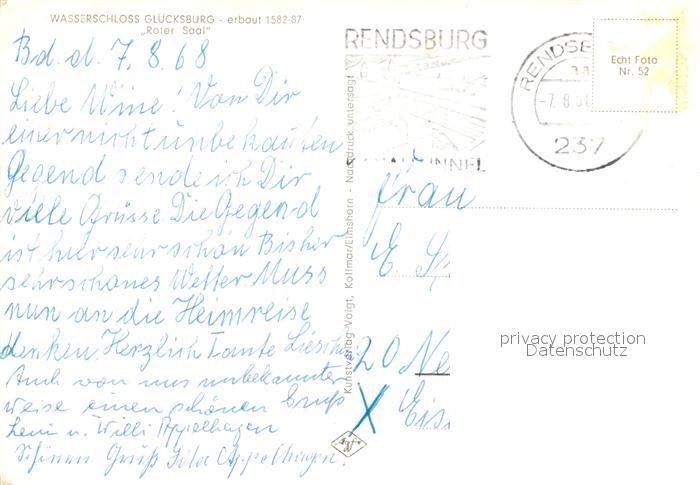 WASSERSCHLOSS GLÜCKSBURG - erbaut 1582-87
„Roter Saal"
Bd. d. 7. 8. 68
Liebe Mine! Von Dir
einer nicht unbekannten
Gegend sende ich Dir
viele Grüsse Die Gegend
ist hier sehr schön Bisher
sehr schönes Wetter Muss
nun an die Heimreise
denken Herzlich Tante Lieschen
Auch von uns unbekannter
weise einen schönen Gruß
Leni u. Willi Appelhagen
Schönen Gruß Appelhagen.
Kunstverlag-Voigt, Kollmar/Elmshorn - Nachdruck untersagt
RENDSBURG
RENDSB
-7. 8. 68
237
Echt Foto
Nr. 52
Frau
E. Sp
20 Ne
X Eis
privacy protection
Datenschutz